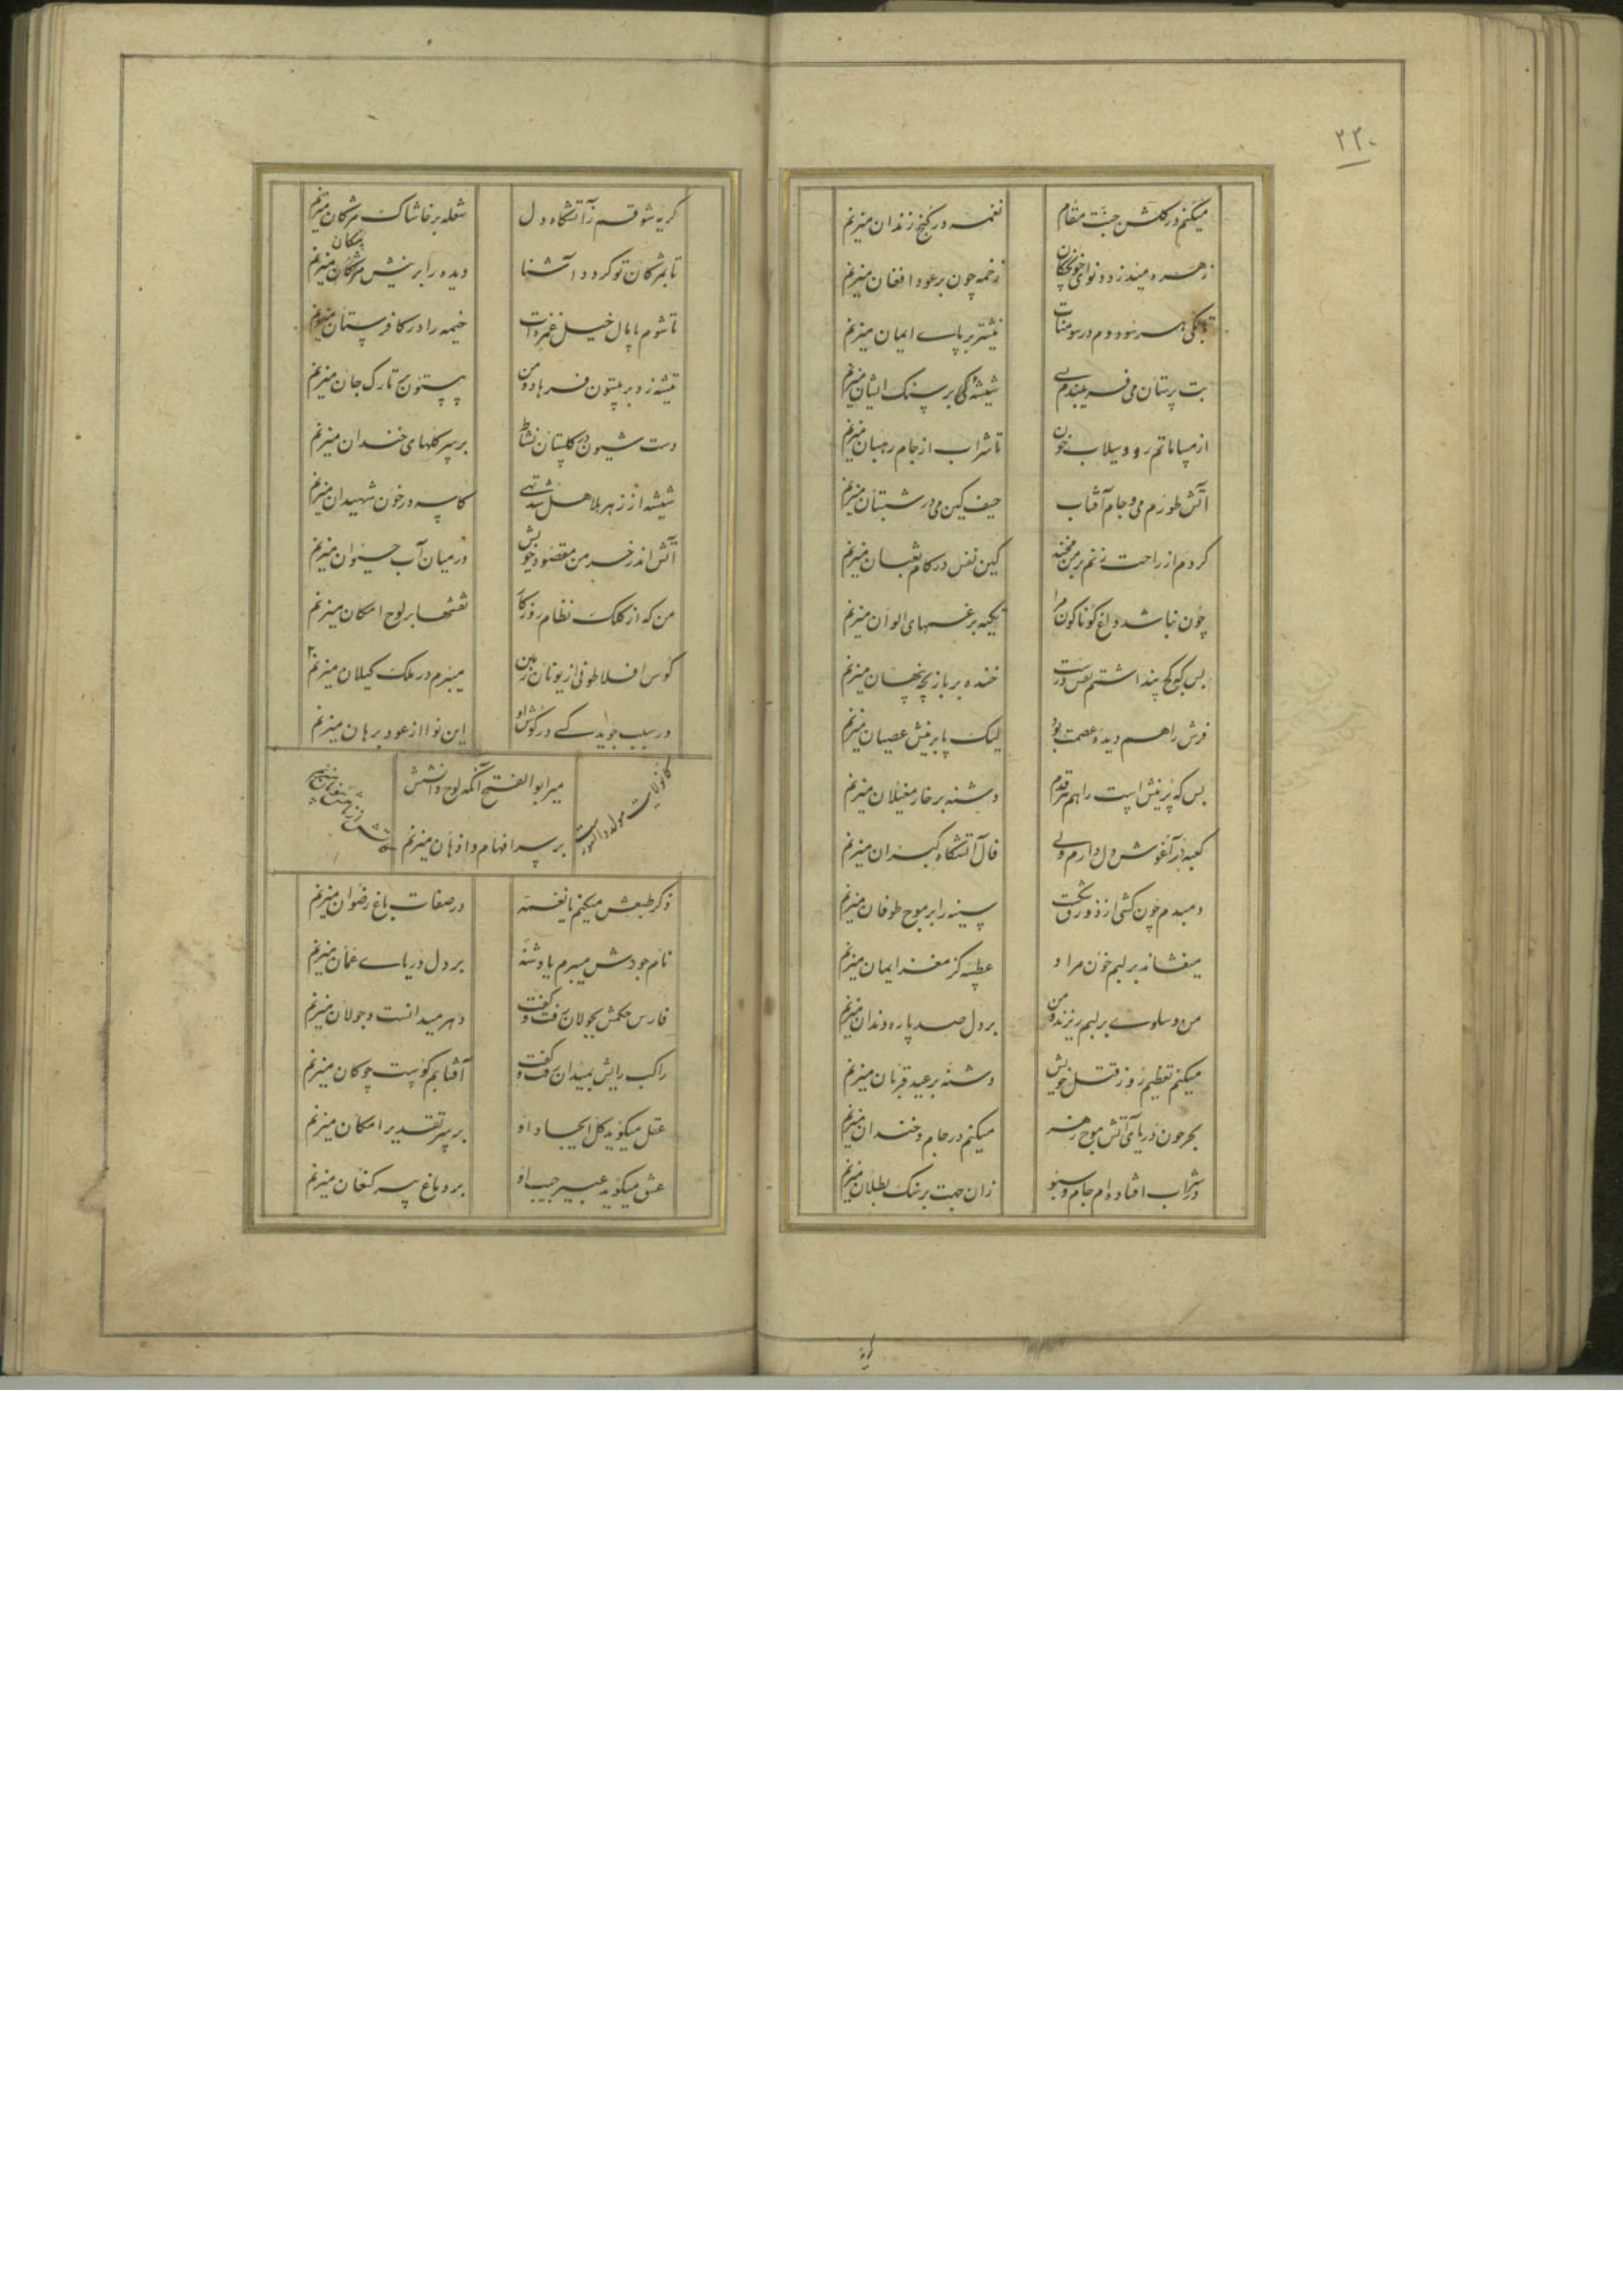 ۲۲۰
میکنم در گلشن جنت مقام
نغمه در کنج زندان میزنم
زهره میدزدد نوای خونچکان
زخمه چون بر عود افغان میزنم
سر نبودم در سومنات
نیشتر بر پای ایمان میزنم
بت پرستان می فریبندم
بر سنک ایشان میزنم
از مسامات تم رود سیلاب خون
تا شراب از جام رهبان میزنم
آتش طورم می و جام آفتاب
حیف کین می در شبستان میزنم
کر دم از راحت زنم بر من مخند
کین نفس در کام ثعبان میزنم
چون نباشد داغ کوناکون مرا
تکیه بر غمهای الوان میزنم
بس که کج پنداشتم نقش درست
خنده بر بازیچه پنهان میزنم
فرش راهم دیده عصمت بود
لیک پا بر نیش عصیان میزنم
بس که پر نیش است راهم هر قدم
دشنه بر خار مغیلان میزنم
کعبه در آغوش دل دارم ولی
فال آتشگاه کبران میزنم
دمبدم چون کشتی از زورق
سینه را بر موج طوفان میزنم
میفشاند بر لبم خون مراد
عطسه کز مغز ایمان میزنم
من و سلوی بر لبم ریزند و من
بر دل صد پاره دندان میزنم
میکنم تعظیم روز قتل خویش
دشنه بر عید قربان میزنم
بحر خون دریای آتش موج زهر
میکنم در جام و خندان میزنم
در شراب افتاده ام جام و سبو
زان جهت بر سنک بطلان میزنم
کریه
کریه شوقم ز آتشگاه دل
شعله بر خاشاک مژکان میزنم
تا بمژکان تو کردد آشنا
دیده را بر نیش مژکان میزنم
پیکان
تا شوم پامال خیل غمزه ات
خیمه را در کافرستان میزنم
تیشه زد بر بیستون فرهاد و من
بیستون بر تارک جان میزنم
دست شیون در کلستان نشاط
بر سر کلهای خندان میزنم
شیشه از زهر هلاهل شد تهی
کاسه در خون شهیدان میزنم
آتش اندر خرمن مقصود خویش
در میان آب حیوان میزنم
من که از کلک نظام روزکار
نقشها بر لوح امکان میزنم
کوس افلاطونی از یونان زمین
میبرم در ملک کیلان میزنم
ور سبب جوید کسی در کوش او
این نوا از عود برهان میزنم
کانولایت مولد
میر ابوالفتح آنکه لوح دانشش
بر سر افهام و اذهان میزنم
ذکر طبعش میکنم یا نغمه
در صفات باغ رضوان میزنم
نام جودش میبرم یا دشنه
بر دل دریای عمان میزنم
فارس حکمش بجولان رفت و کفت
دهر میدانست و جولان میزنم
راکب رایش بمیدان رفت و کفت
آفتابم کوست چوکان میزنم
عقل میکوید کل ایجاد او
بر سر تقدیر امکان میزنم
عشق میکوید عبیر جیب او
بر دماغ پیر کنعان میزنم